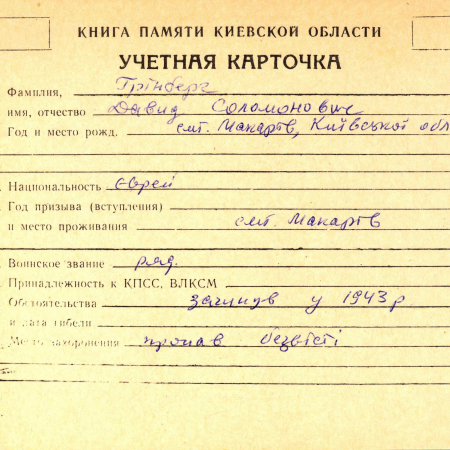 КНИГА ПАМЯТИ КИЕВСКОЙ ОБЛАСТИ
УЧЕТНАЯ КАРТОЧКА
Фамилия, Грінберг
имя, отчество Давид Соломонович
Год и место рожд. смт. Макарів, Київської обл
Национальность Єврей
Год призыва (вступления)
и место проживания смт. Макарів
Воинское звание ряд.
Принадлежность к КПСС, ВЛКСМ
Обстоятельства загинув у 1943 р
и дата гибели
Место захоронения пропав безвісті